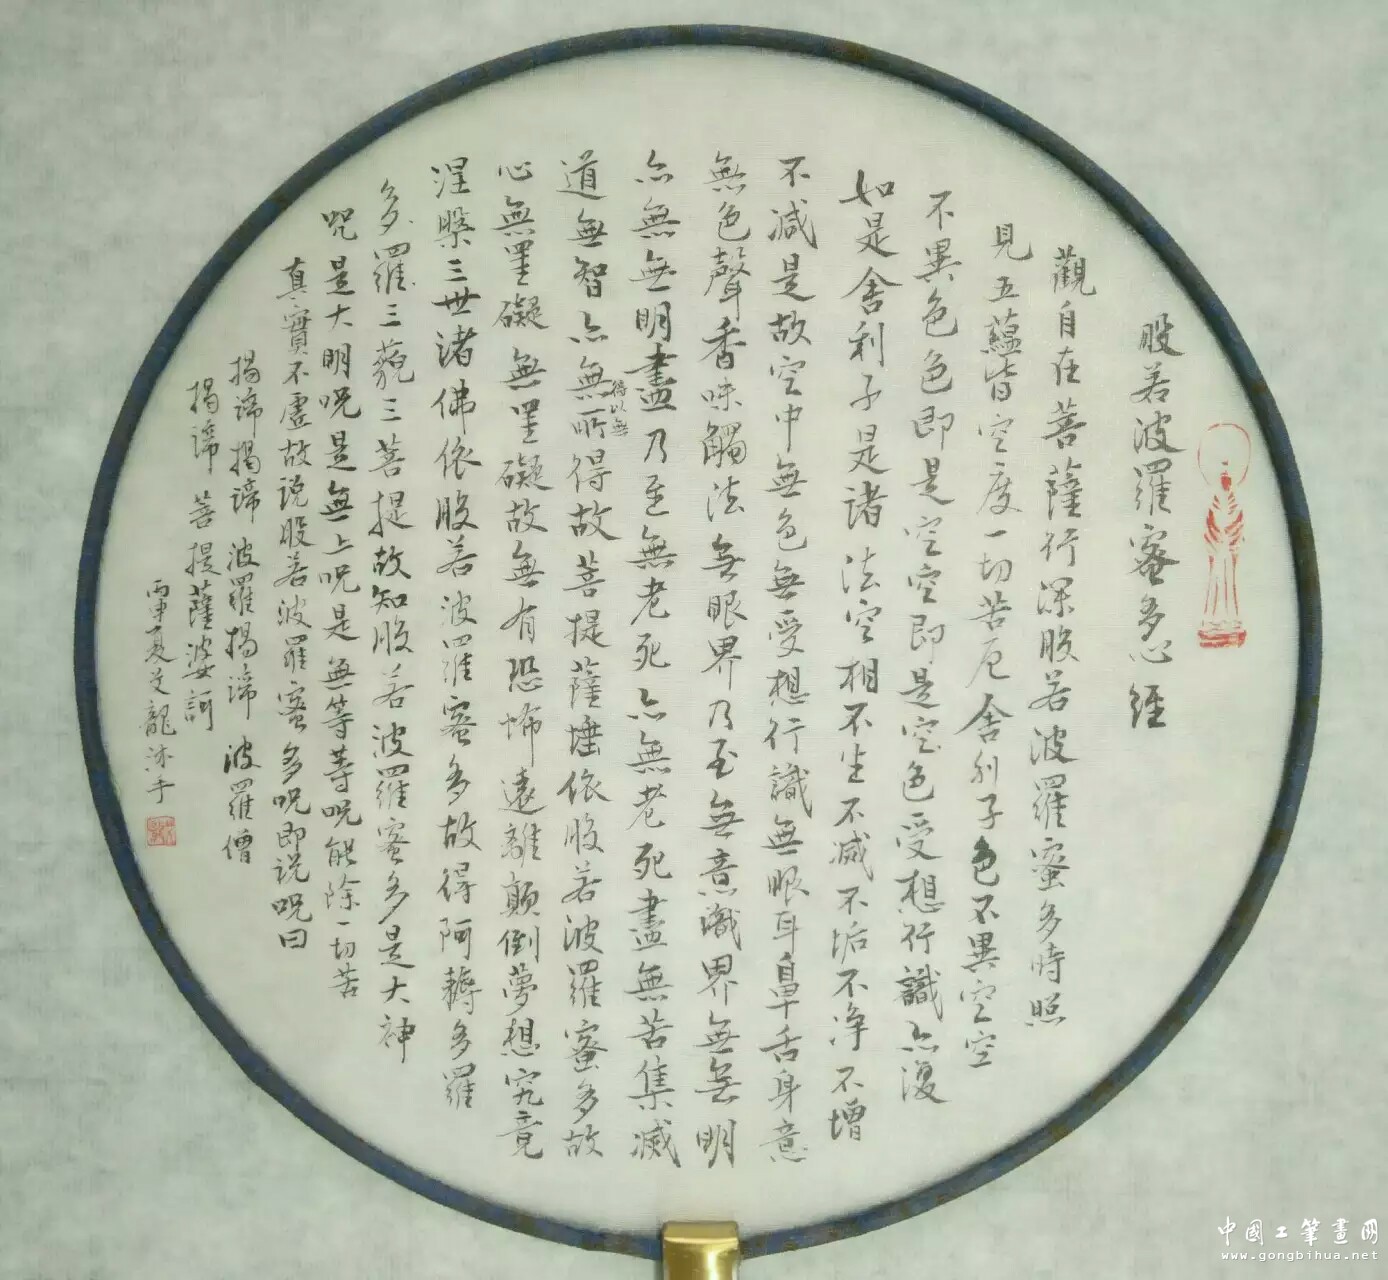 般若波羅蜜多心經
觀自在菩薩行深般若波羅蜜多時照
見五蘊皆空度一切苦厄舍利子色不異空空
不異色色即是空空即是空色受想行識亦復
如是舍利子是諸法空相不生不滅不垢不净不增
不減是故空中無色無受想行識無眼耳鼻舌身意
無色聲香味觸法無眼界乃至無意識界無無明
亦無無明盡乃至無老死亦無老死盡無苦集滅
道無智亦無所得故菩提薩埵依般若波羅蜜多故
得以無
心無罣礙無罣礙故無有恐怖遠離顛倒夢想究竟
涅槃三世诸佛依般若波羅蜜多故得阿耨多羅
多羅三藐三菩提故知般若波羅蜜多是大神
咒是大明咒是無上咒是無等等咒能除一切苦
真實不虛故说般若波羅蜜多咒即说咒曰
揭諦揭諦波羅揭諦波羅僧
揭諦菩提薩婆訶
丙申夏文龍沐手
中國工筆畫网
www.gongbihua.net